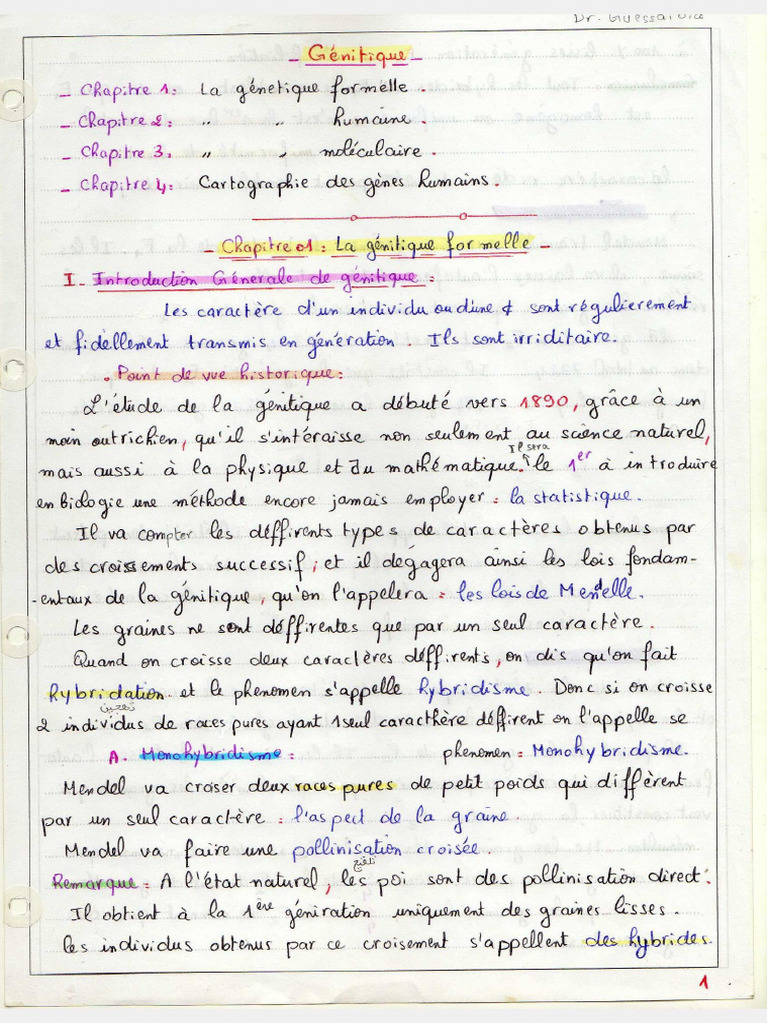 Dr. Guessaibia
- Génitique -
- Chapitre 1: La génetique formelle.
- Chapitre 2: " " humaine.
- Chapitre 3: " " moléculaire.
- Chapitre 4: Cartographie des gènes humains.
- Chapitre 01: La génitique formelle -
I- Introduction Génerale de génitique:
Les caractère d'un individu ou d'une sont régulierement
et fidéllement transmis en génération. Ils sont irriditaire.
. Point de vue historique:
L'étude de la génitique a débuté vers 1890, grâce à un
moin outrichien, qu'il s'intéraisse non seulement au science naturel,
Il stra
mais aussi à la physique et du mathématique. le 1er à introduire
en biologie une méthode encore jamais employer: la statistique.
Il va compter les déffirents types de caractères obtenus par
des croissements successif, et il dégagera ainsi les lois fondam-
-entaux de la génitique, qu'on l'appelera: les lois de Mendelle.
Les graines ne sont déffirentes que par un seul caractère.
Quand on croisse deux caractères déffirents, on dis qu'on fait
hybridation et le phenomen s'appelle hybridisme. Donc si on croisse
تهجين
2 individus de races pures ayant 1 seul caracthère déffirent on l'appelle se
A. Monohybridisme: phenomen: Monohybridisme.
Mendel va croser deux races pures de petit poids qui diffèrent
par un seul caractère: l'aspect de la graine.
Mendel va faire une pollinisation croisée.
تلقيح
Remarque: A l'état naturel, les poi sont des pollinisation direct.
Il obtient à la 1ère géniration uniquement des graines lisses.
les individus obtenus par ce croisement s'appellent des hybrides.
1